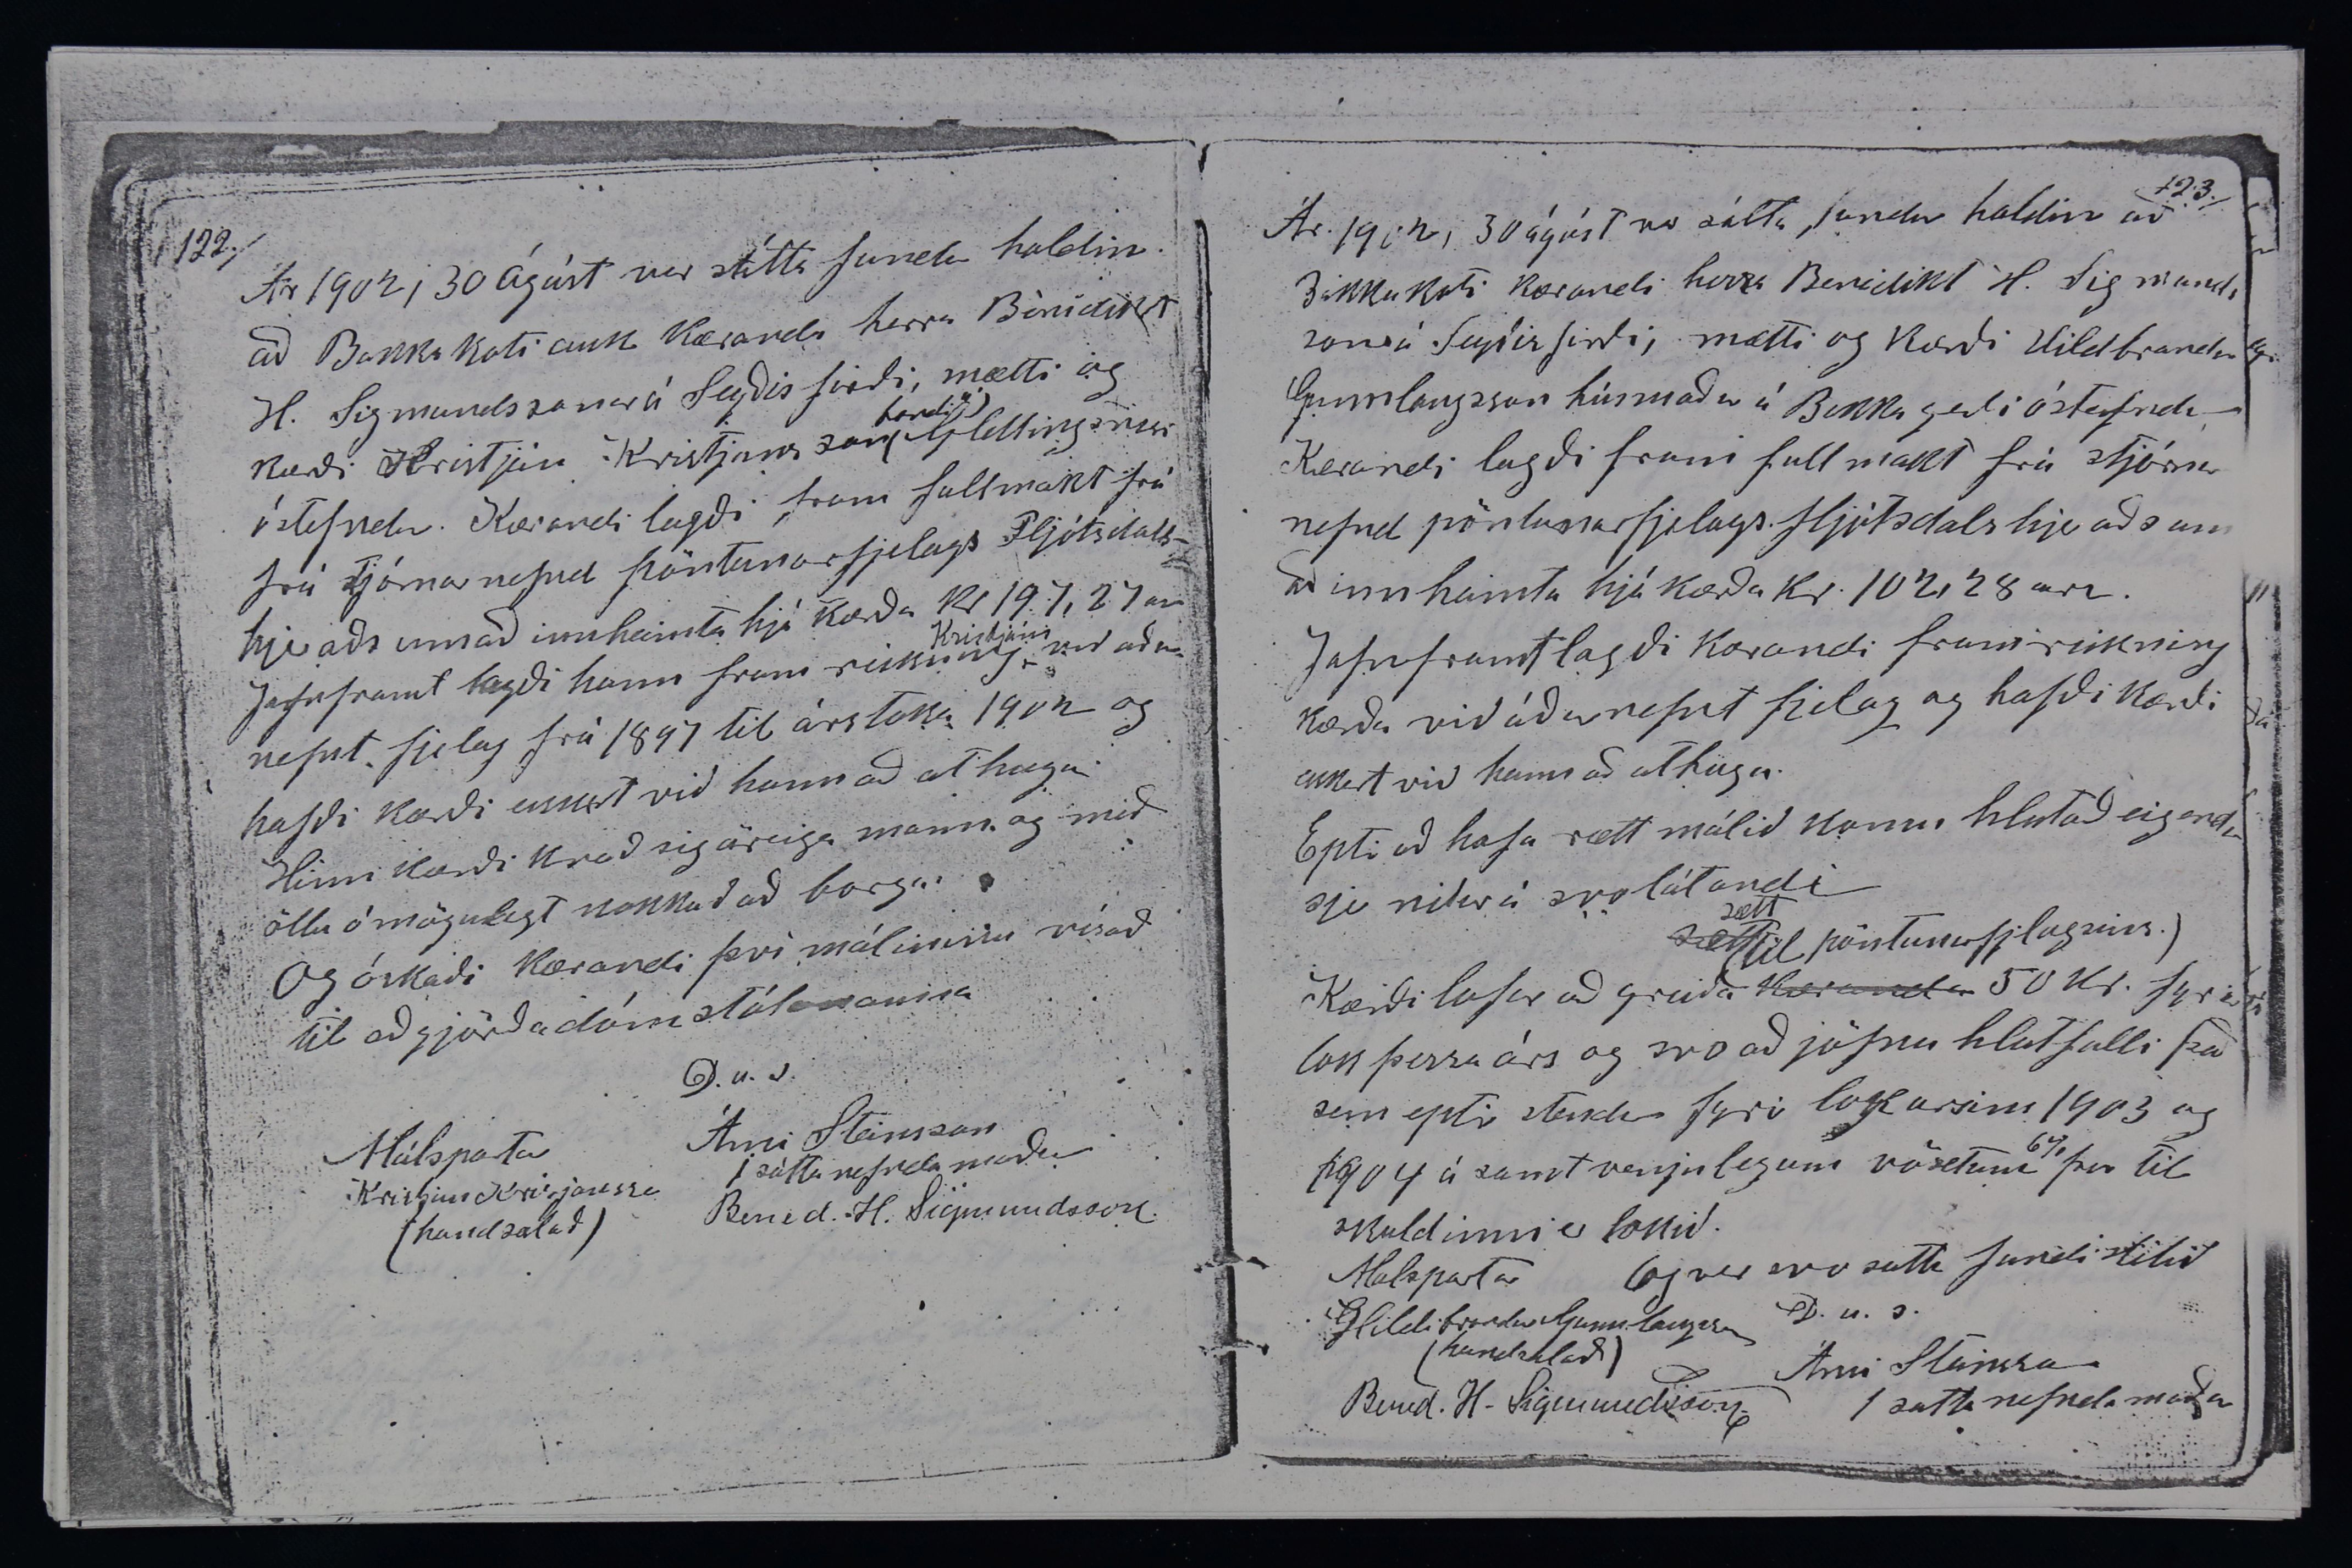 122./
Ár 1902, 30 Ágúst var sátta fundur haldin
að Bakkakoti auk Kæranda herra Bènidikt
H. Sigmundssonar á Seyðisfirði, mætti og
kærði Kristján Kristjánsson bondi á Glettingsnesi
óstefndur. Kærandi lagði fram fullmakt frá
frá stjórnarnefnd pöntunarfjelags Fljótsdals-
hjeraðs um að innheimta hjá kærða Kr 197,27 au
Jafnframt lagði hann fram reikning Kristjáns við aður
nefnt fjelag frá 1897 til ársloka 1902 og
hafði Kærði ekkert við hann að athuga
Hinn kærði kvað sig öreiga mann og með
öllu ómögulegt nokkuð að borga
Og óskaði Kærandi því málinu vísað
til aðgjörða dómstólanna
D. u. s.
Málspartar
Árni Steinsson
1 sátta nefndar maður
Kristján Kristjánsson
(handsalað)
Bened. H. Sigmundsson.
123./
Ár. 1902, 30 ágúst var sátta fundur haldin að
Bakkakoti Kærandi herra Benidikt H. Sigmunds
son á Seyðisfirði, mætti og Kærði Hildbrandur
Gunnlaugsson húsmaður á Bakkagerði óstefndur
Kærandi lagði fram fullmakt frá stjórnar
nefnd pöntunarfjelags Fljótsdalshjeraðs um
að innheimta hjá kærða Kr. 102,28 aura.
Jafnframt lagði Kærandi fram reikning
kærða við áðurnefnt fjelag og hafði Kærði
ekkert við hann að athuga.
Eptir að hafa rætt málið komu hlutaðeigendur
sjer niður á svolátandi
sætt
til pöntunarfjelagsins.)
Kærði lofar að greiða Kæranda 50 Kr. fyrir
lok þessa árs og svo að jöfnu hlutfalli það
sem eptir stendur fyrir lok ársins 1903 og
1904 ásamt venjulegum vöxtum 6% þar til
skuldinni er lokið.
Malspartar
Og var svo sátta fundi slitið
Hildibrandur Gunnlaugsson
D. u. s.
(handsalað)
Árni Steinsson
Bened. H. Sigmundsson
1 satta nefndar maður